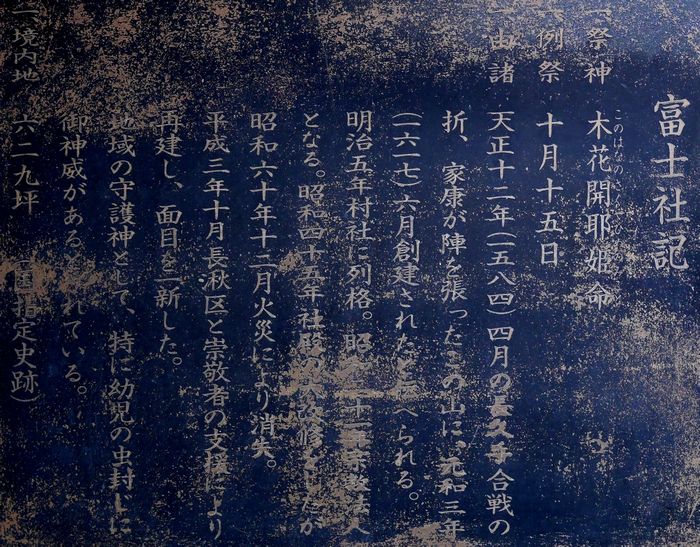 富士社記
一、祭神 木花開耶姫命
一、例祭 十月十五日
一、由諸 天正十二年(一五八四)四月の長久手合戦の
折、家康が陣を張ったこの山に、元和三年
(一六一七)六月創建されたと伝へられる。
明治五年村社に列格。昭和二十一年宗教法人
となる。昭和四十五年社殿の大改修をしたが
昭和六十年十二月火災により消失。
平成三年十月長湫区と崇敬者の支援により
再建し、面目を一新した。
地域の守護神として、特に幼児の虫封じに
御神威があるとされている。
一、境内地 六二九坪 (国指定史跡)